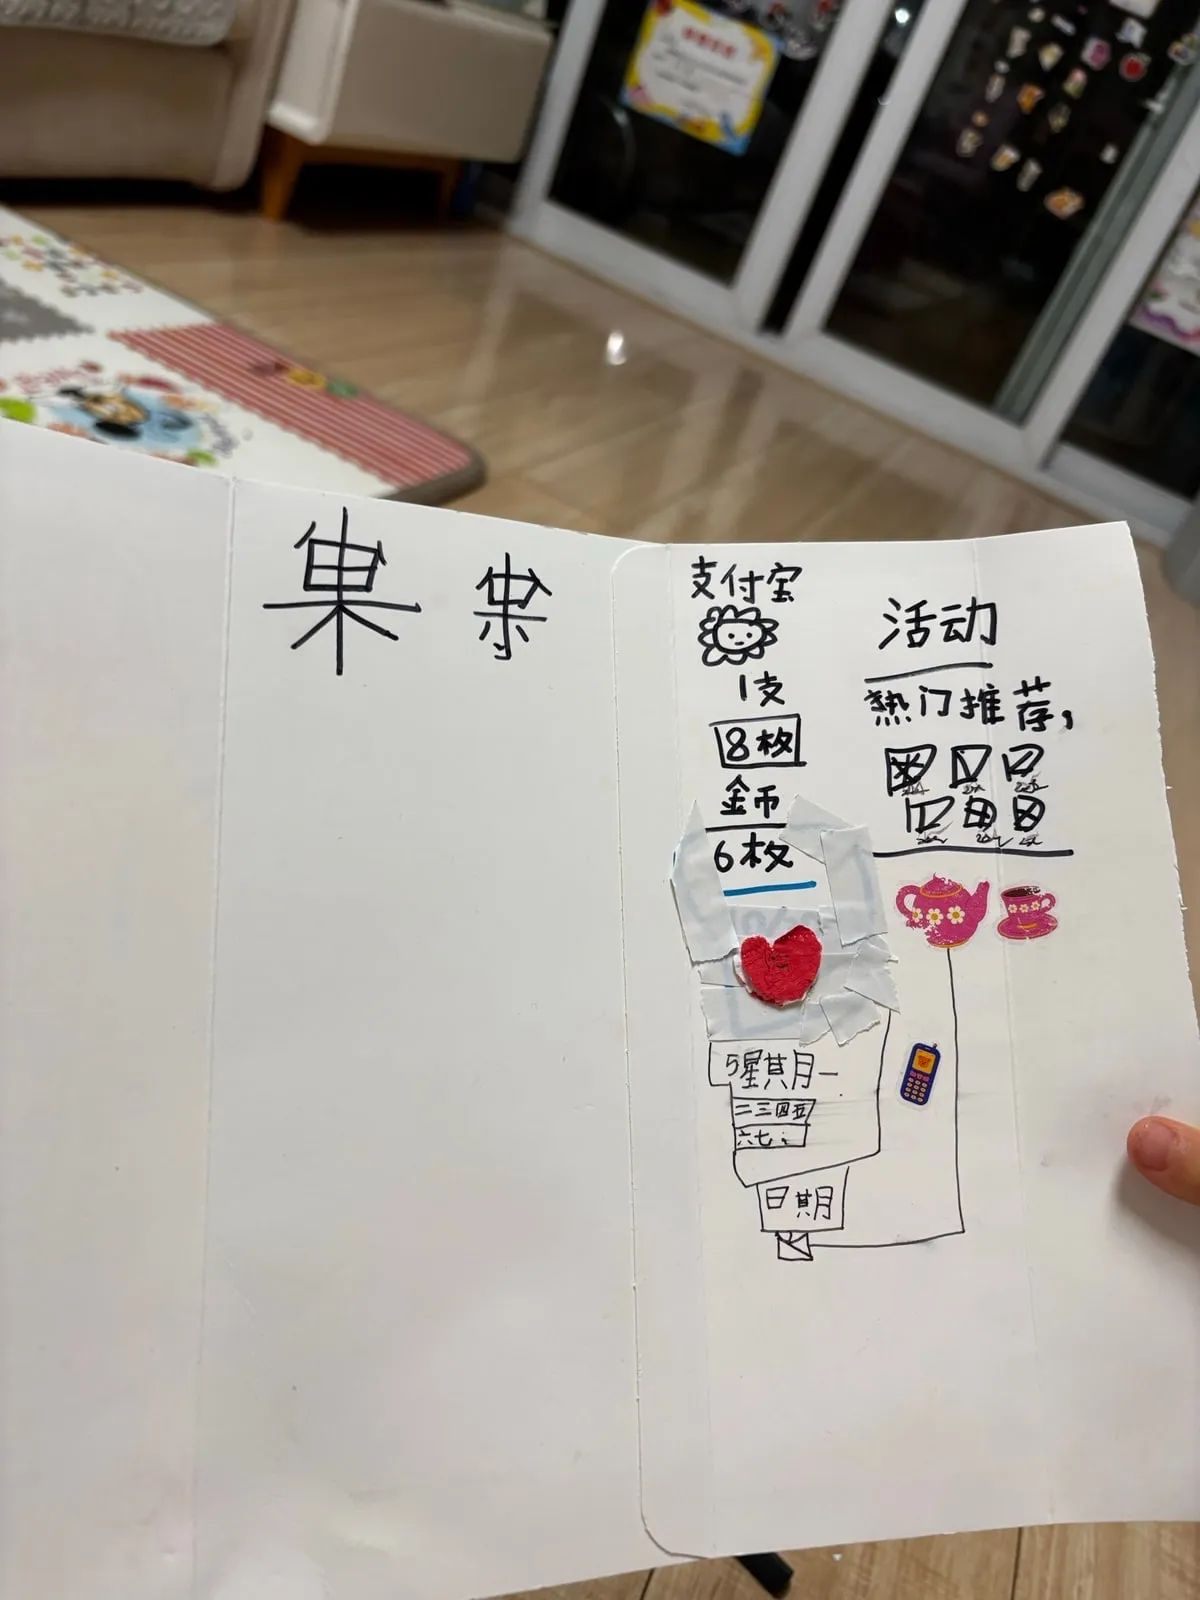 支付宝
1支
8枚
金币
6枚
5星其月一
二三四五
六七
日期
活动
热门推荐,